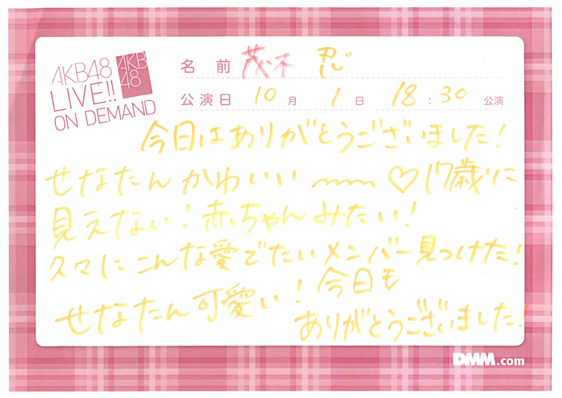 AKB48
LIVE!!
ON DEMAND
AKB
48
名 前 茂木 忍
公演日 10月 1日 18:30 公演
今日はありがとうございました!
せなたんかわいい 〜〜〜 ♡ 17歳に
見えない!赤ちゃんみたい!
久々にこんな愛でたいメンバー見つけた!
せなたん可愛い!今日も
ありがとうございました!
DMM.com